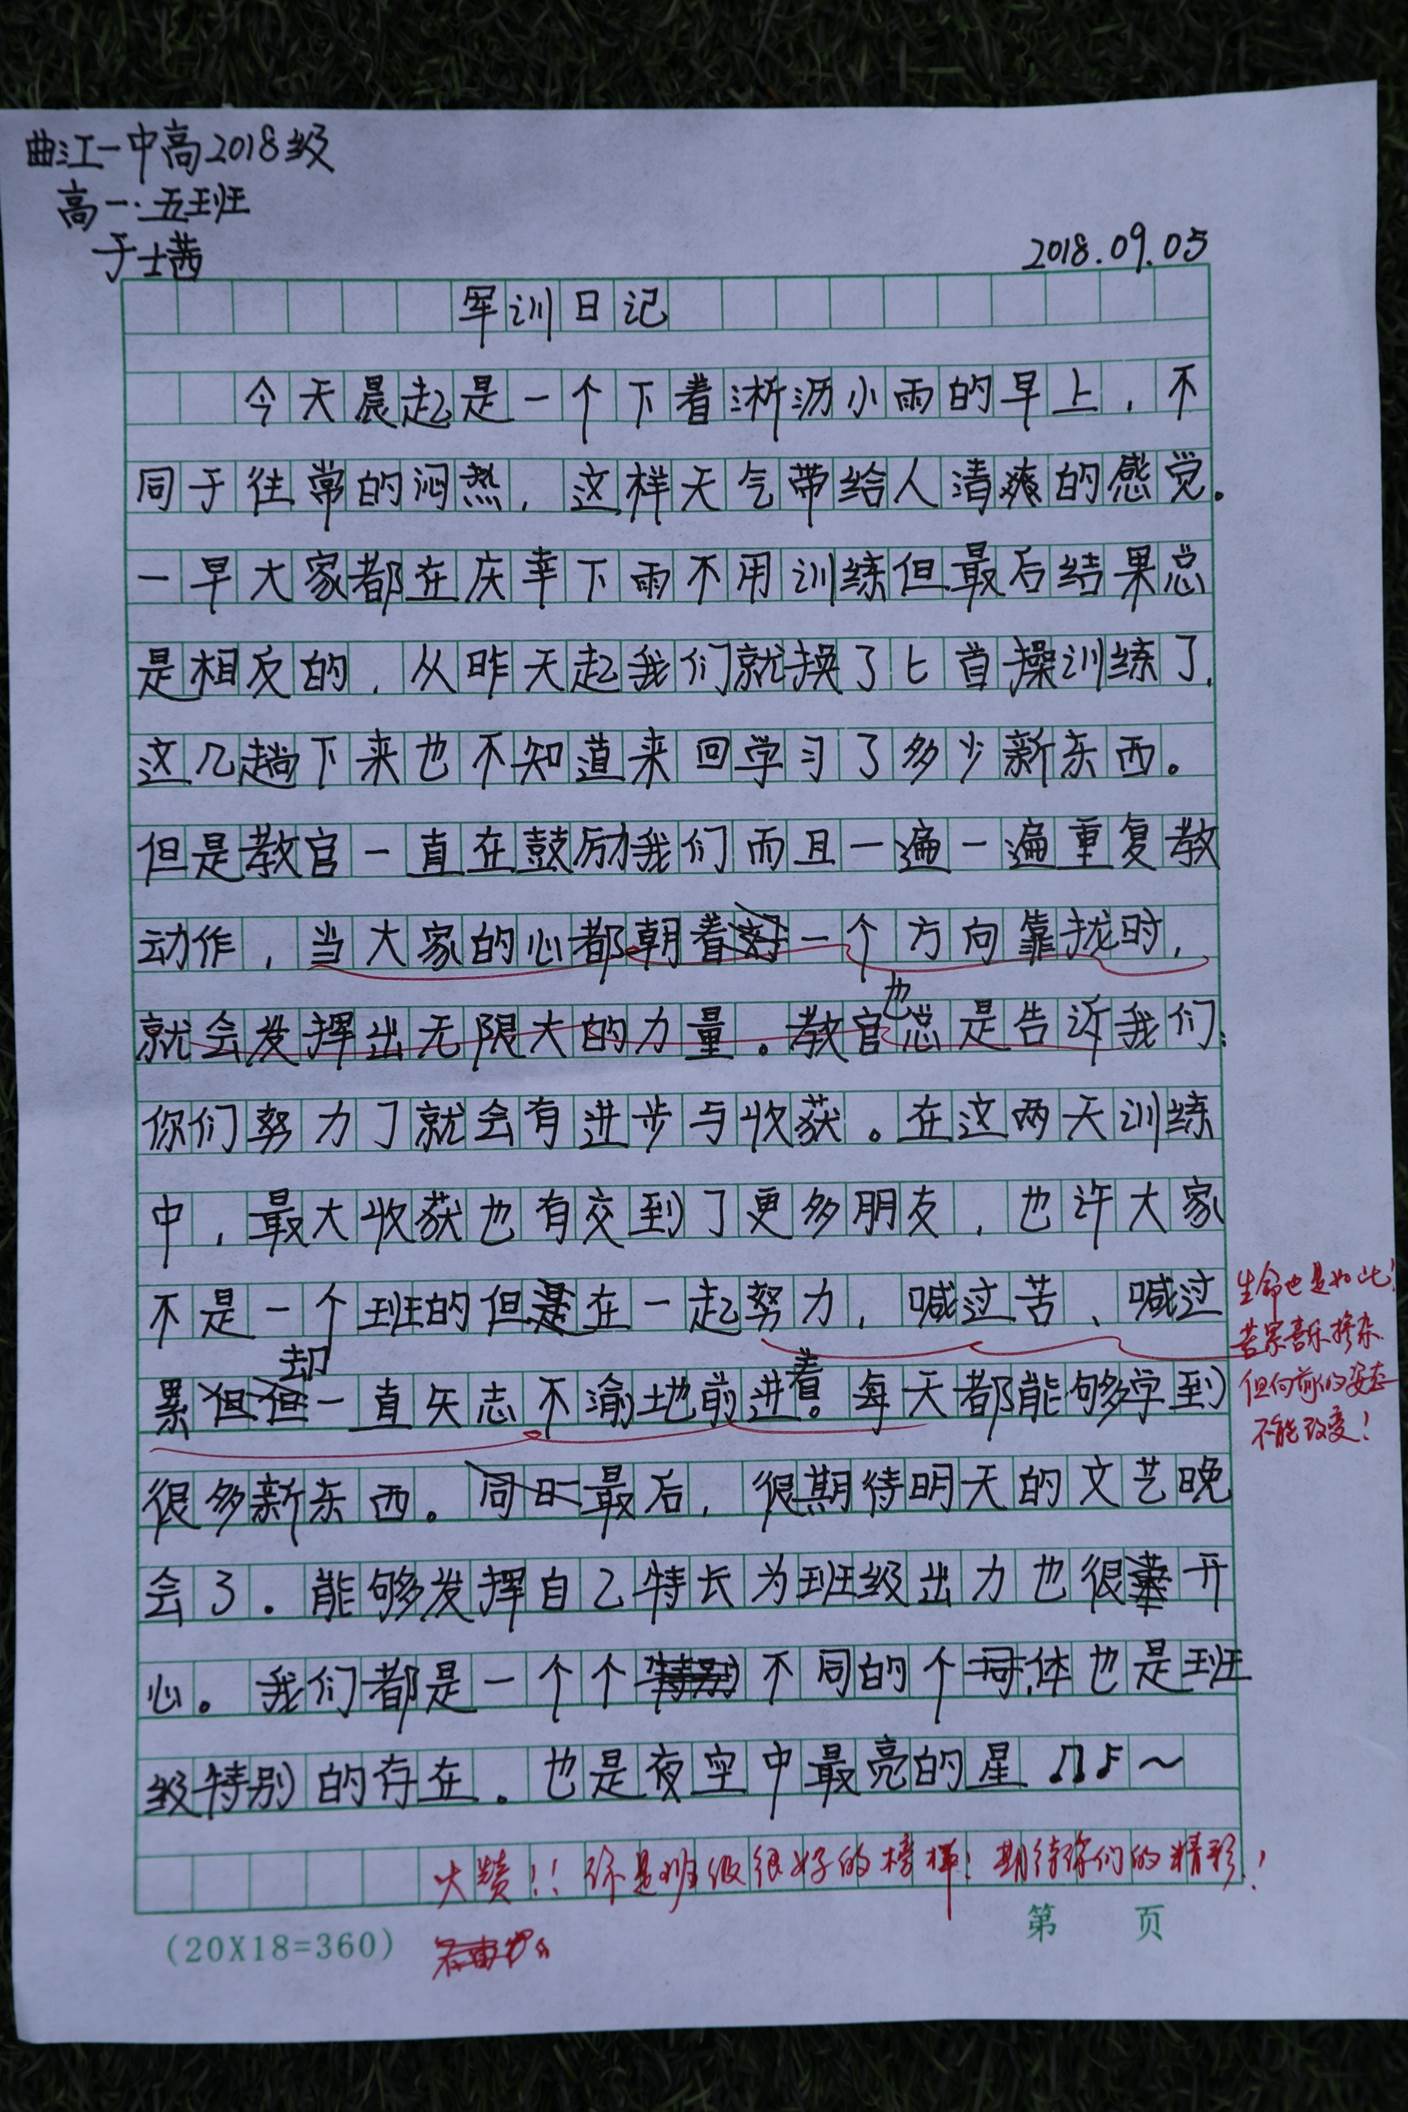 曲江一中高2018级
高一·五班
于士茜
2018.09.05
军训日记
今天晨起是一个下着淅沥小雨的早上，不
同于往常的闷热，这样天气带给人清爽的感觉。
一早大家都在庆幸下雨不用训练但最后结果总
是相反的，从昨天起我们就换了匕首操训练了，
这几趟下来也不知道来回学习了多少新东西。
但是教官一直在鼓励我们而且一遍一遍重复教
动作，当大家的心都朝着一个方向靠拢时，
就会发挥出无限大的力量。教官也总是告诉我们：
你们努力了就会有进步与收获。在这两天训练
中，最大收获也有交到了更多朋友，也许大家
不是一个班的但是在一起努力，喊过苦、喊过
累却一直矢志不渝地前进着。每天都能够学到
很多新东西。最后，很期待明天的文艺晚
会了。能够发挥自己特长为班级出力也很开
心。我们都是一个个不同的个体也是班
级特别的存在。也是夜空中最亮的星♫♪～
生命也是如此！
苦累喜乐掺杂
但向前的姿态
不能改变！
大赞！！你是班级很好的榜样！期待你们的精彩！
(20X18=360)
第 页